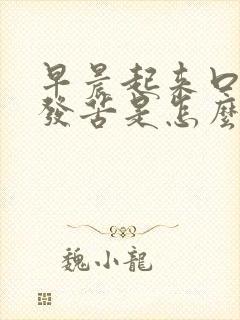 早晨起来口
發苦是怎麼
魏小龍